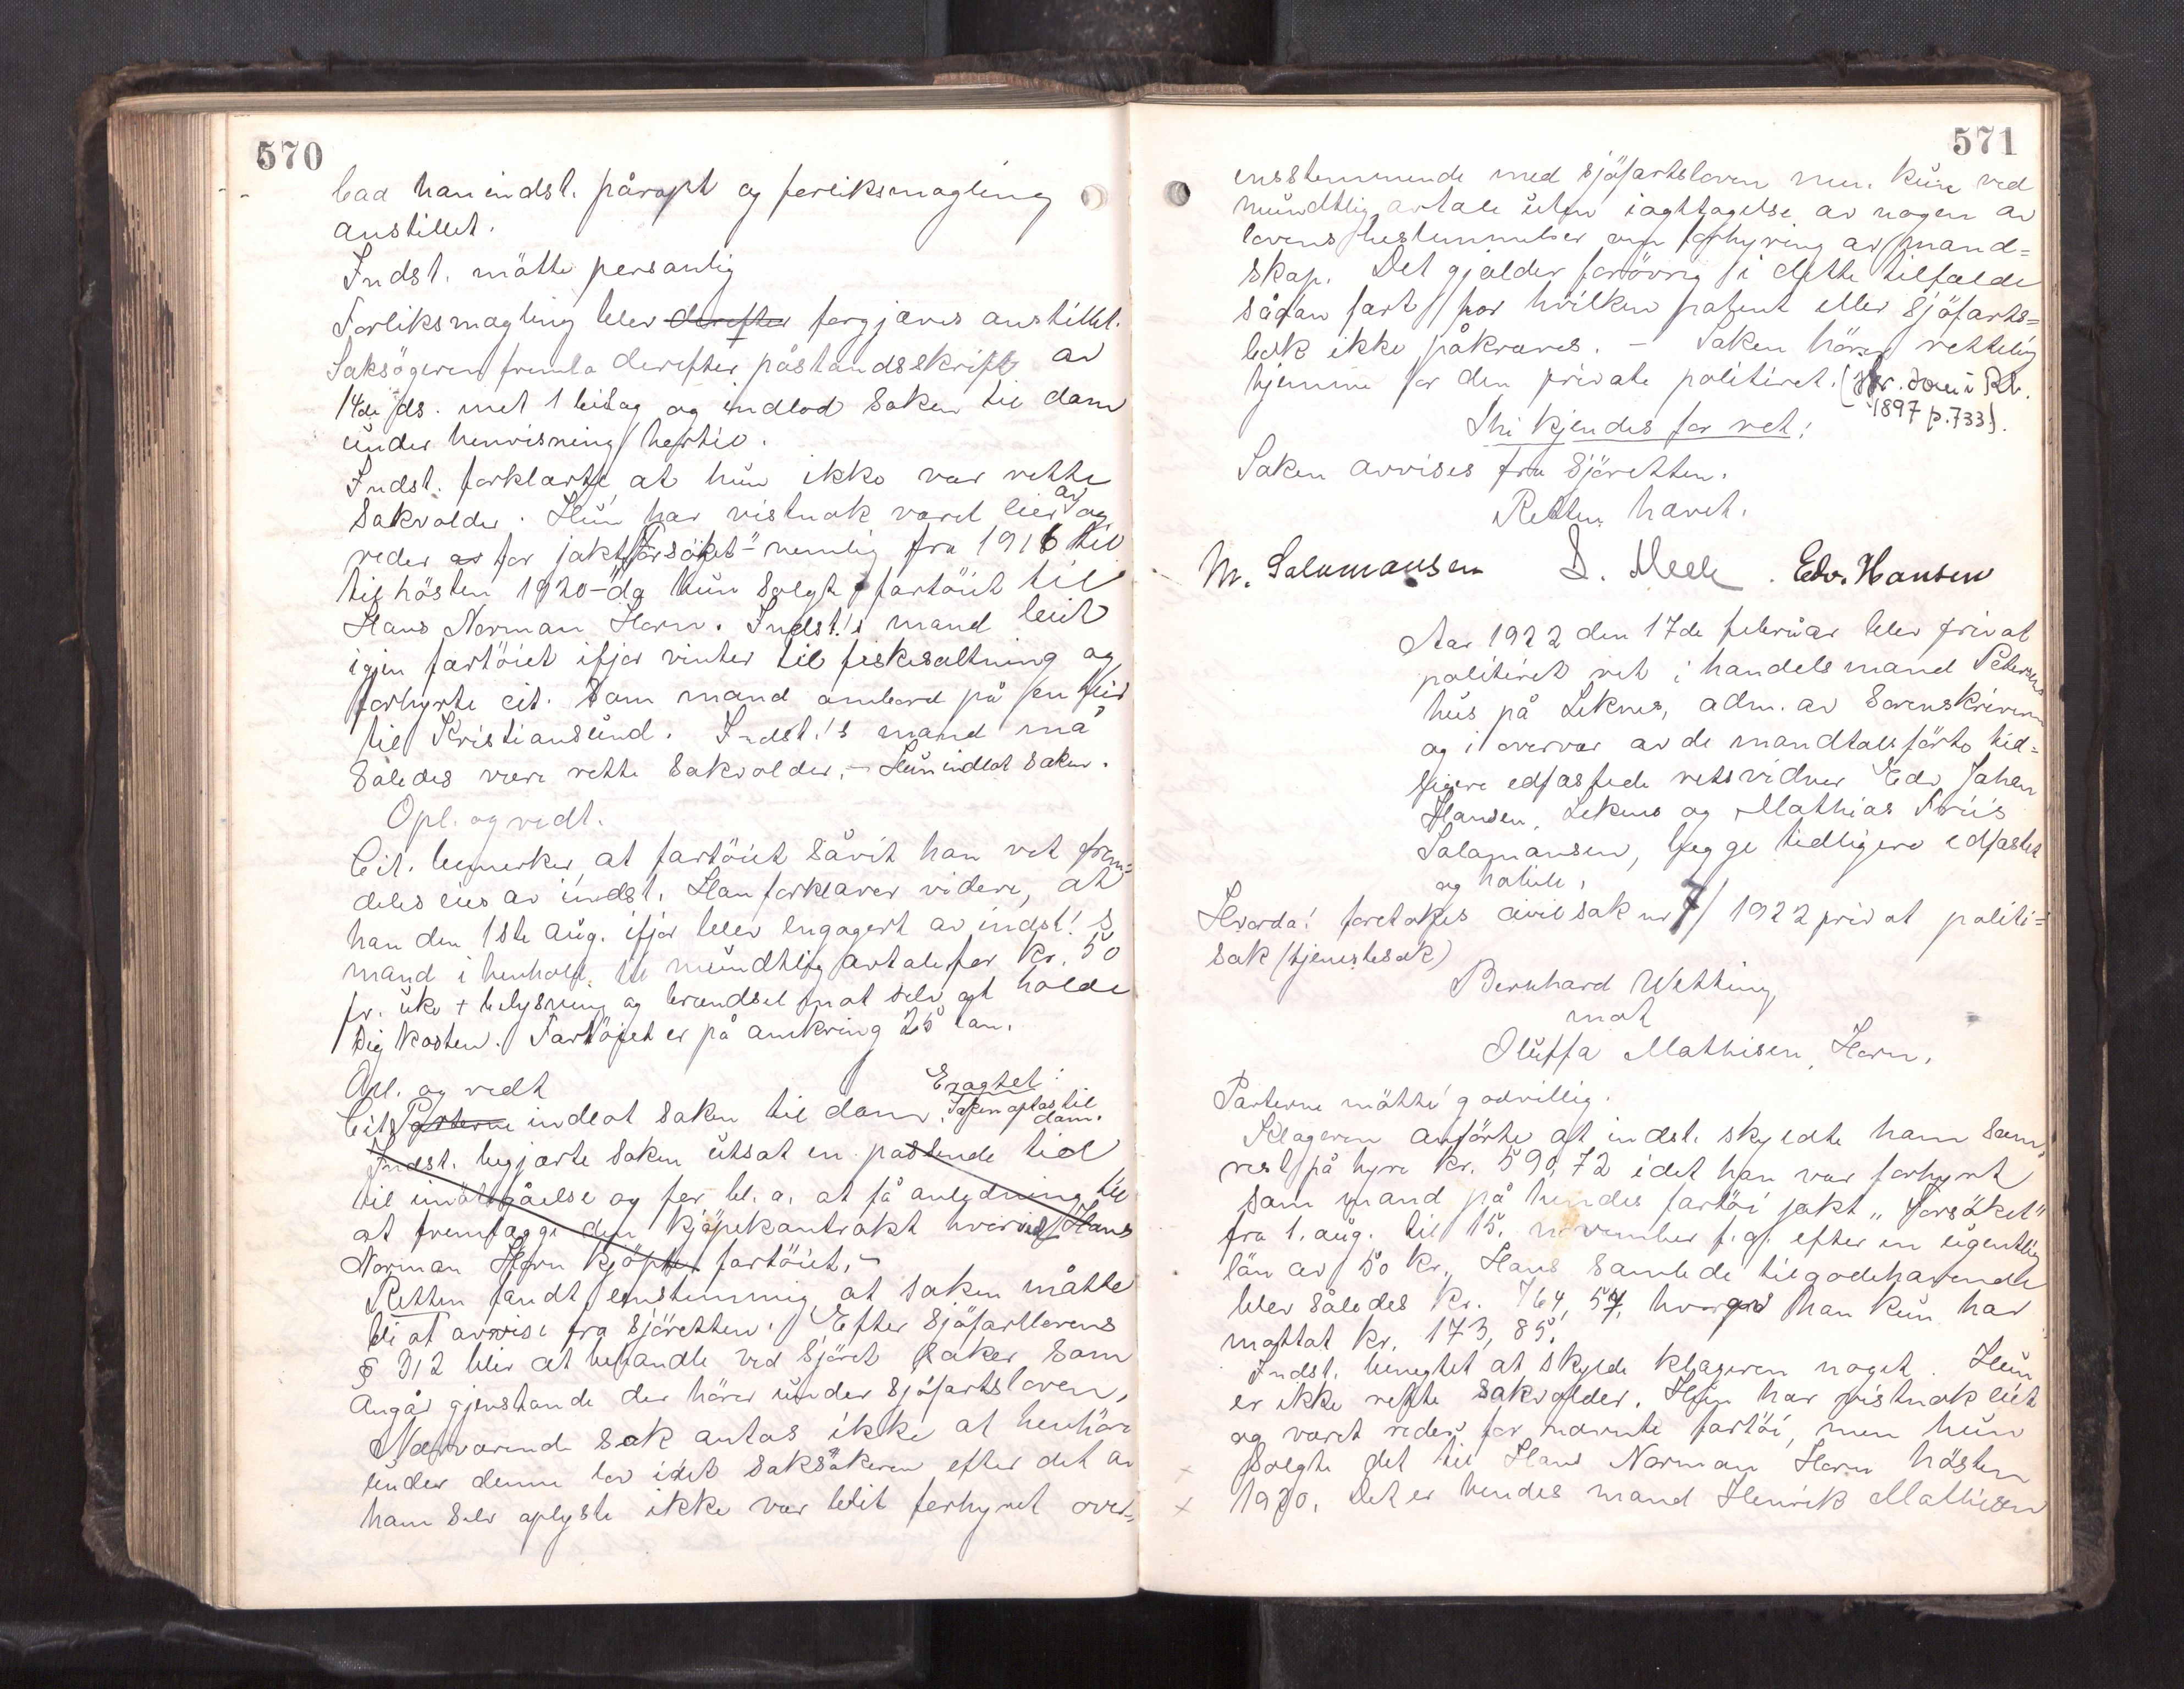 570
bad han indst. påropt og forliksmægling
anstillet.
Indst. mötte personlig
Forliksmægling blev derefter forgjæves anstillet.
Saksögeren fremla derefter påstandsskrift av
14de ds. met 1 bilag og indlod saken til dom
under henvisning hertil.
Indst. forklarte, at hun ikke var rette
sakvolder. Hun har vistnok været eier av og
reder for jakt "Forsöket" nemlig fra 1916 til
til hösten 1920 - da hun solgte fartöiet til
Hans Norman Horn. Indst.'s mand leiet
igjen fartöiet ifjor vinter til fiskesaltning og
forhyrte cit. som mand ombord på en tur
til Kristiansund. Indst.'s mand må
således være rette sakvolder. - Hun indlot saken.
Opl. og vedt.
Cit. bemerker, at fartöiet såvit han vet frem-
deles eies av indst. Han forklarer videre, at
han den 1ste aug. ifjor blev engagert av indst.'s
mand i henhold til mundtlig avtale for kr. 50
pr. uke + belysning og brændsel mot selv at holde
sig kosten. Fartöiet er på omkring 25 ton.
Opl. og vedt
Eragtet:
Cit. Parterne indlot saken til dom. Saken optas til
dom.
Indst. begjærte saken utsat en passende tid
til imötegåelse og for bl. a. at få anledning til
at fremlægge den kjöpekontrakt hvorved Hans
Norman Horn kjöpte fartöiet. -
Retten fandt enstemmig at saken måtte
bli at avvise fra sjöretten. Efter Sjöfartlovens
§ 312 blir at behandle ved Sjöret saker som
angår gjenstande der hörer under sjöfartsloven,
Nærværende sak antas ikke at henhöre
under denne lov idet saksökeren efter det av
ham selv oplyste ikke var blit forhyret over-
571
ensstemmende med sjöfartsloven men kun ved
mundtlig avtale uten iagttagelse av nogen av
lovens bestemmelser om forhyring av mand-
skap. Det gjælder forövrig i dette tilfælde
sådan fart for hvilken patent eller sjöfarts-
bok ikke påkræves. - Saken hörer rettelig
hjemme for den private politiret. (Jfr. dom i Rt.
1897 p. 733).
Thi kjendes for ret:
Saken avvises fra Sjöretten.
Retten hævet.
M. Salomonsen Edv. Hansen
Aar 1922 den 17de februar blev privat
politiret sat i handelsmand Petersens
hus på Leknes, adm. av Sorenskriveren
og i overvær av de mandtalsförte tid-
ligere edfæstede retsvidner Edv. Johan
Hansen, Leknes og Mathias Friis
Salomonsen, begge tidligere edfæstet
og habile.
Hvorda: foretokes civilsak nr 7/1922 privat politi-
sak (tjenestesak)
Bernhard Wetting
mot
Oluffa Mathisen, Horn.
Parterne mötte godvillig.
Klageren anförte at indst. skyldte ham som
rest på hyre kr. 590,72 idet han var forhyret
som mand på hendes fartöi jakt "Forsöket"
fra 1. aug. til 15. november f. å. efter en ugentlig
lön av 50 kr. Hans samlede tilgodehavende
blev således kr. 764,57, hvorav han kun har
mottat kr. 173,85.
Indst. benegtet at skylde klageren noget. Hun
er ikke rette sakvolder. Hun har vistnok eiet
og været reder for nævnte fartöi, men hun
solgte det til Hans Norman Horn hösten
1920. Det er hendes mand Henrik Mathisen